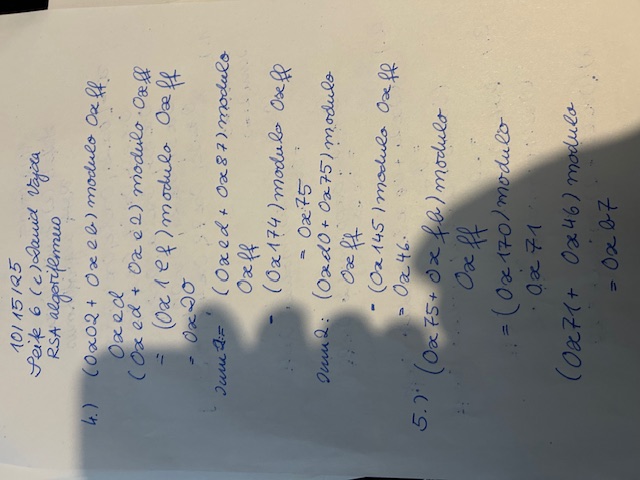 10/15/25
Seite 6 (c) David Vajda
RSA algorithmus
4.) (0x02 + 0xeb) modulo 0xff
0xed
(0xed + 0xe2) modulo 0xff
= (0x1ef) modulo 0xff
= 0xd0
(0xed + 0x87) modulo
0xff
= (0x174) modulo 0xff
= 0x75
(0xd0 + 0x75) modulo
0xff
= (0x145) modulo 0xff
= 0x46
5.) (0x75 + 0xfb) modulo
0xff
= (0x170) modulo
0x71
(0x71 + 0x46) modulo
= 0xb7